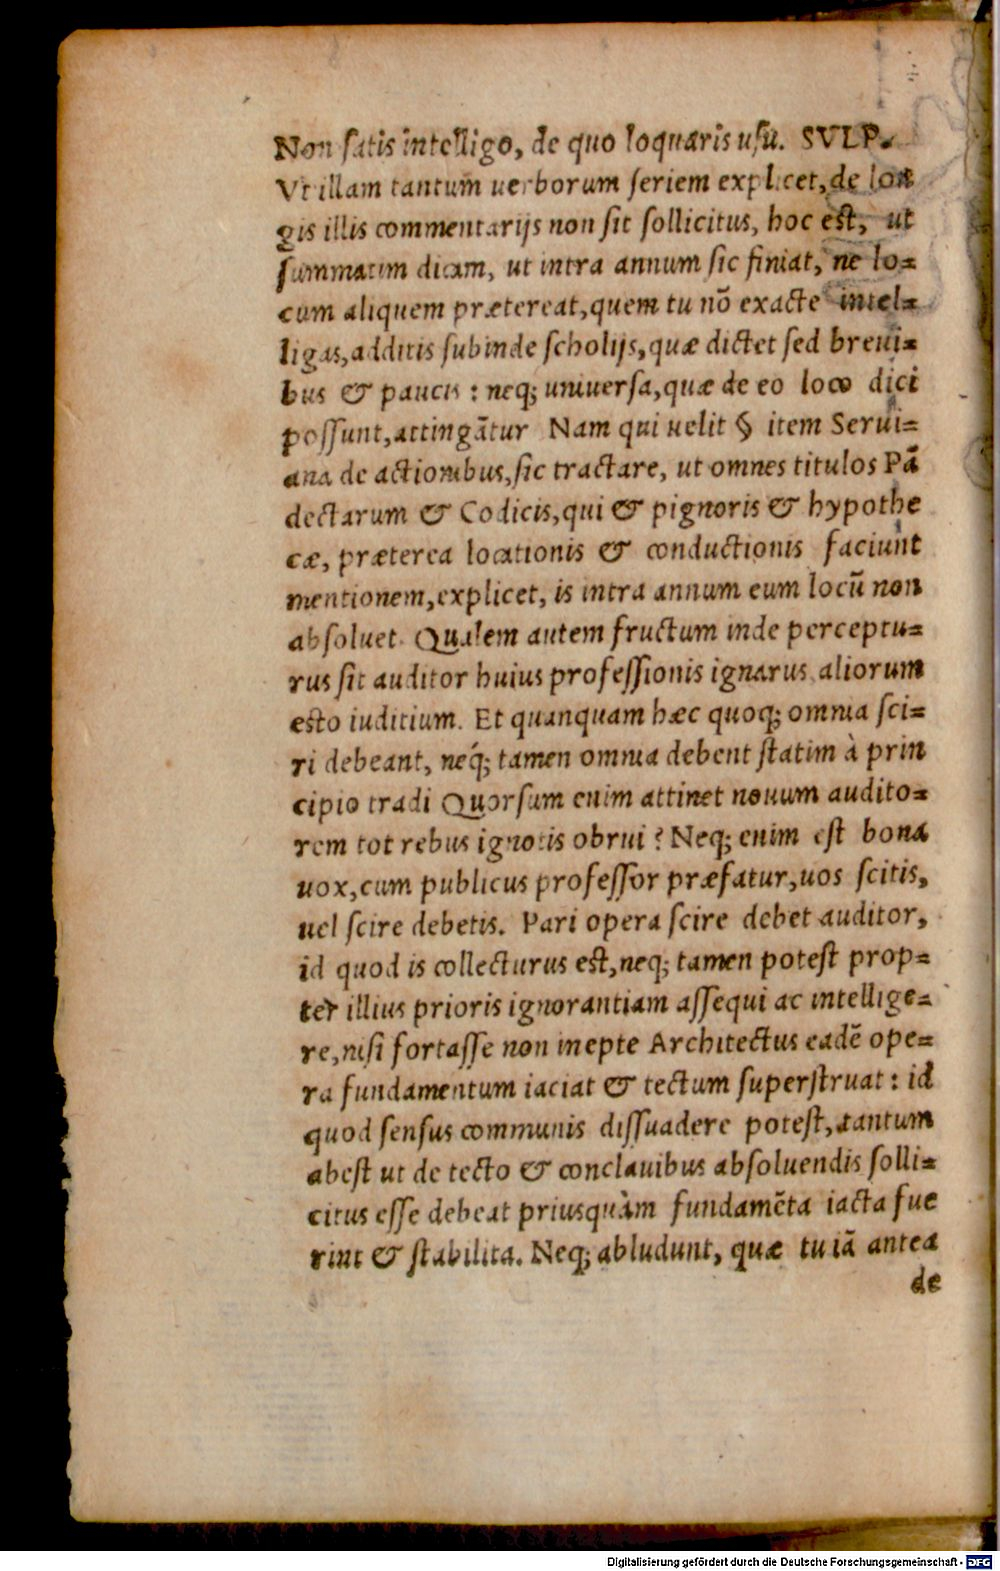 Non ſatis intelligo, de quo loquaris uſu. SVLP.
Vt illam tantum uerborum ſeriem explicet, de lon
gis illis commentarijs non ſit ſollicitus, hoc est, ut
ſummatim dicam, ut intra annum ſic finiat, ne lo=
cum aliquem prætereat, quem tu nõ exacte intel=
ligas, additis ſubinde ſcholijs, quæ dictet ſed breui=
bus & paucis : neq; uniuerſa, quæ de eo loco dici
poſſunt, attingãtur Nam qui uelit § item Serui=
ana de actionibus, ſic tractare, ut omnes titulos Pã
dectarum & Codicis, qui & pignoris & hypothe
cæ, præterea locationis & conductionis faciunt
mentionem, explicet, is intra annum eum locũ non
abſoluet. Qualem autem fructum inde perceptu=
rus ſit auditor huius profeſſionis ignarus, aliorum
esto iuditium. Et quanquam hæc quoq; omnia ſci=
ri debeant, neq́; tamen omnia debent ſtatim à prin
cipio tradi Quorſum enim attinet nouum audito=
rem tot rebus ignotis obrui ? Neq; enim eſt bona
uox, cum publicus profeſſor præfatur, uos ſcitis,
uel ſcire debetis. Pari opera ſcire debet auditor,
id quod is collecturus est, neq; tamen poteſt prop=
ter illius prioris ignorantiam aſſequi ac intellige=
re, niſi fortaſſe non inepte Architectus eadẽ ope=
ra fundamentum iaciat & tectum ſuperſtruat : id
quod ſenſus communis diſſuadere poteſt, tantum
abeſt ut de tecto & conclauibus abſoluendis ſolli=
citus eſſe debeat priusquàm fundamẽta iacta fue
rint & ſtabilita. Neq; abludunt, quæ tu iã antea
de
Digitalisierung gefördert durch die Deutsche Forschungsgemeinschaft - DFG